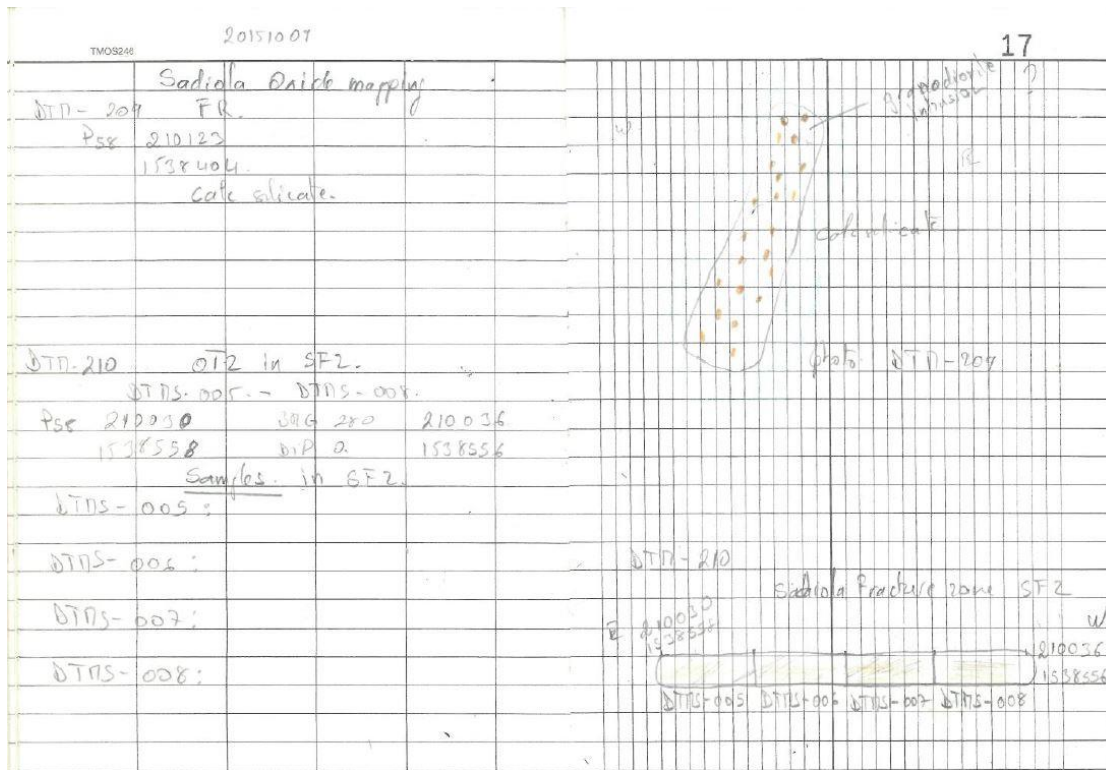 20151007
TMOS246
Sadiola Oxide mapping
DTM-209 FR.
Ps8 210123
1538404.
Calc silicate.
DTM-210 OT2 in SF2.
DTMS-005.- DTMS-008.
Ps8 210030 280 210036
1538558 DIP 0. 1538556
Samples in SF2.
DTMS-005:
DTMS-006:
DTMS-007:
DTMS-008:
17
granodiorite ?
intrusion
W
E
calcsilicate
photo DTM-209
DTM-210
Sadiola Fracture zone SF2
E 210030 W
1538558 210036
1538556
DTMS-005 DTMS-006 DTMS-007 DTMS-008